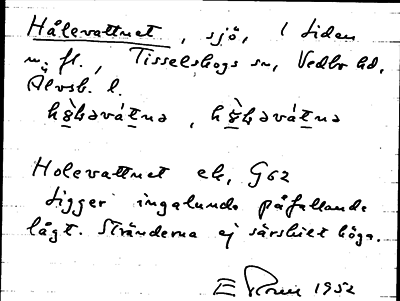 Hålevattnet, sjö, i Liden
m. fl., Tisselskogs sn, Vedbo hd,
Älvsb. l.
Holevattnet ek, G62
Ligger ingalunda påfallande
lågt. Stränderna ej särskilt höga.
1952